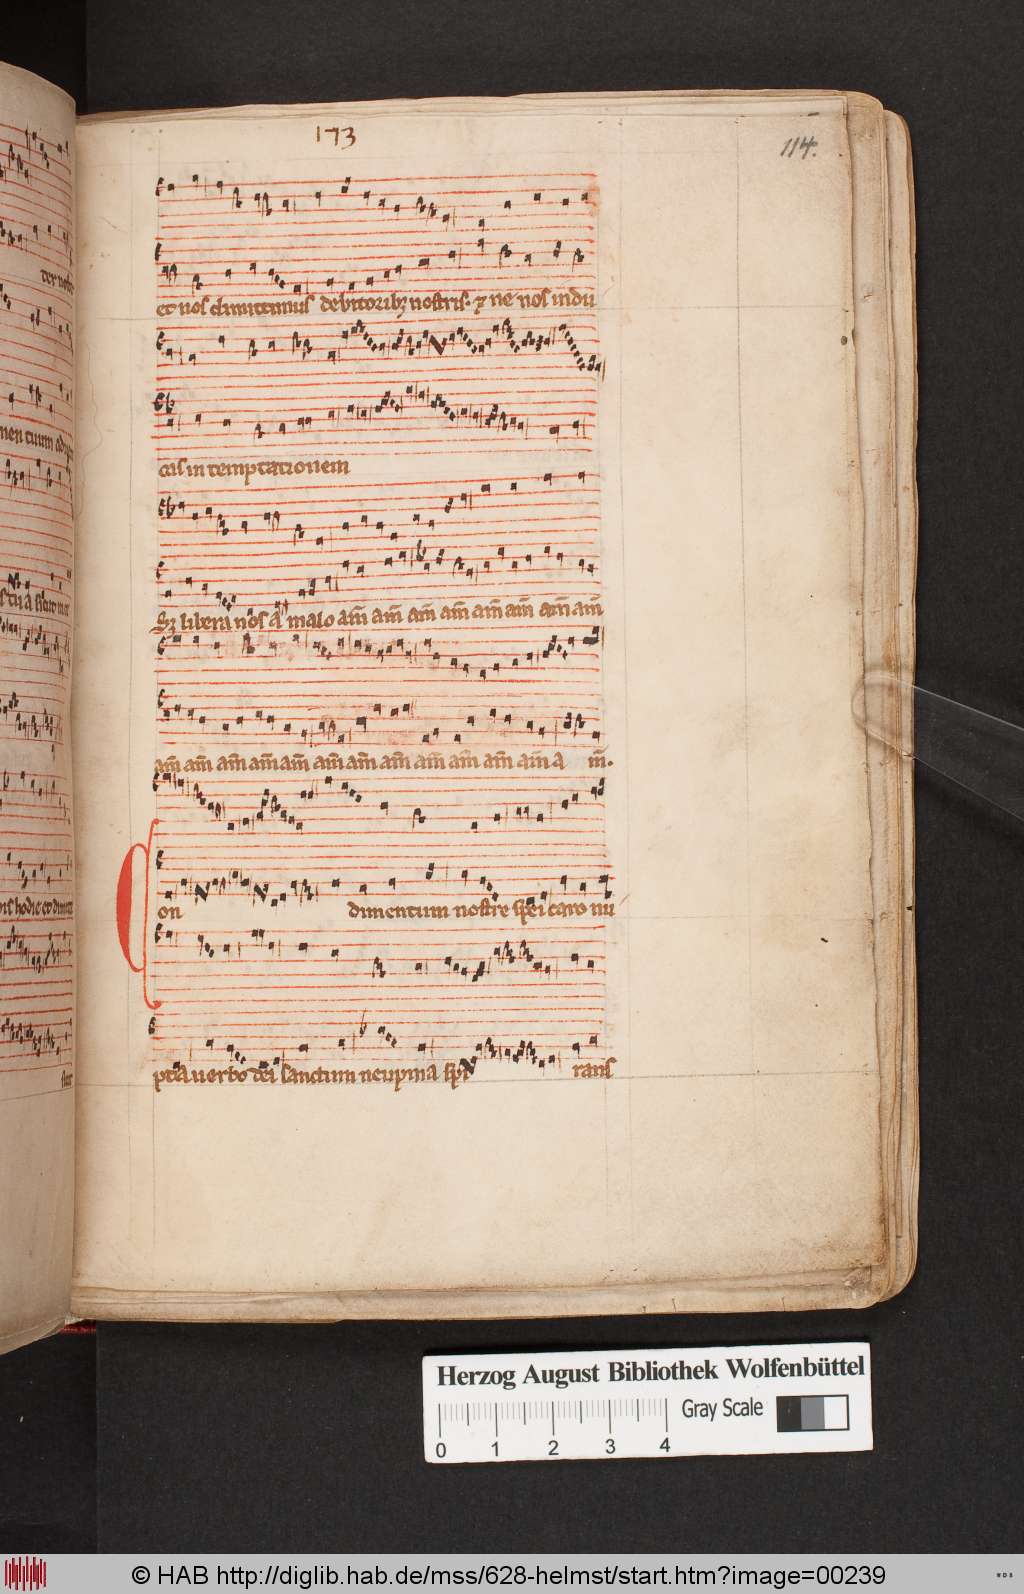 173
114.
et nos dimittimus debitoribꝫ nostris. ⁊ ne nos indu
cas in temptationem
Sꝫ libera nos a malo am̅ am̅ am̅ am̅ am̅ am̅ am̅ am̅
am̅ am̅ am̅ am̅ am̅ am̅ am̅ am̅ am̅ am̅ am̅ am̅ a m̅.
Con dimentum nostre spei caro nu
pta uerbo dei sanctum neupma spi rans
Herzog August Bibliothek Wolfenbüttel
Gray Scale
0 1 2 3 4
© HAB http://diglib.hab.de/mss/628-helmst/start.htm?image=00239